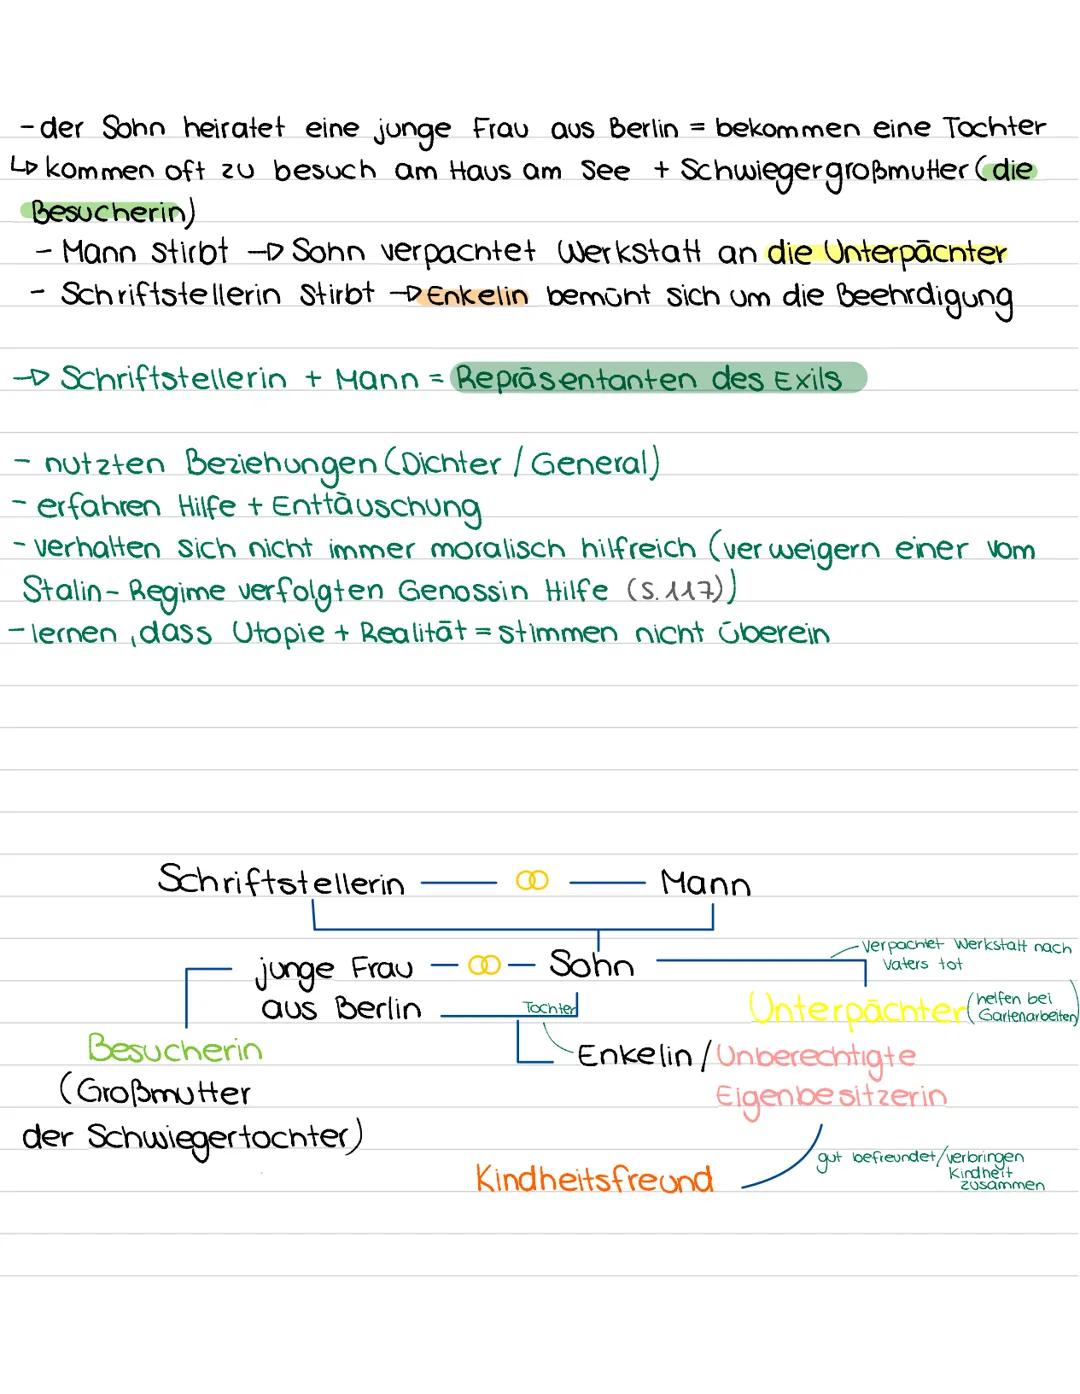 - der Sohn heiratet eine junge Frau aus Berlin = bekommen eine Tochter
↳ kommen oft zu besuch am Haus am See + Schwiegergroßmutter (die
Besucherin)
- Mann stirbt → Sohn verpachtet Werkstatt an die Unterpächter
- Schriftstellerin Stirbt → Enkelin bemüht sich um die Beehrdigung
→ Schriftstellerin + Mann = Repräsentanten des Exils
- nutzten Beziehungen (Dichter / General)
- erfahren Hilfe + Enttäuschung
- verhalten sich nicht immer moralisch hilfreich (verweigern einer vom
Stalin- Regime verfolgten Genossin Hilfe (S. 117))
- lernen, dass Utopie + Realität = stimmen nicht überein
Schriftstellerin Mann
verpachtet Werkstatt nach
Vaters tot
junge Frau Sohn
aus Berlin
Tochter
Unterpächter (helfen bei
Gartenarbeiten)
Besucherin
(Großmutter
der Schwiegertochter)
Enkelin / Unberechtigte
Eigenbesitzerin
Kindheitsfreund
gut befreundet/verbringen
Kindheit
zusammen